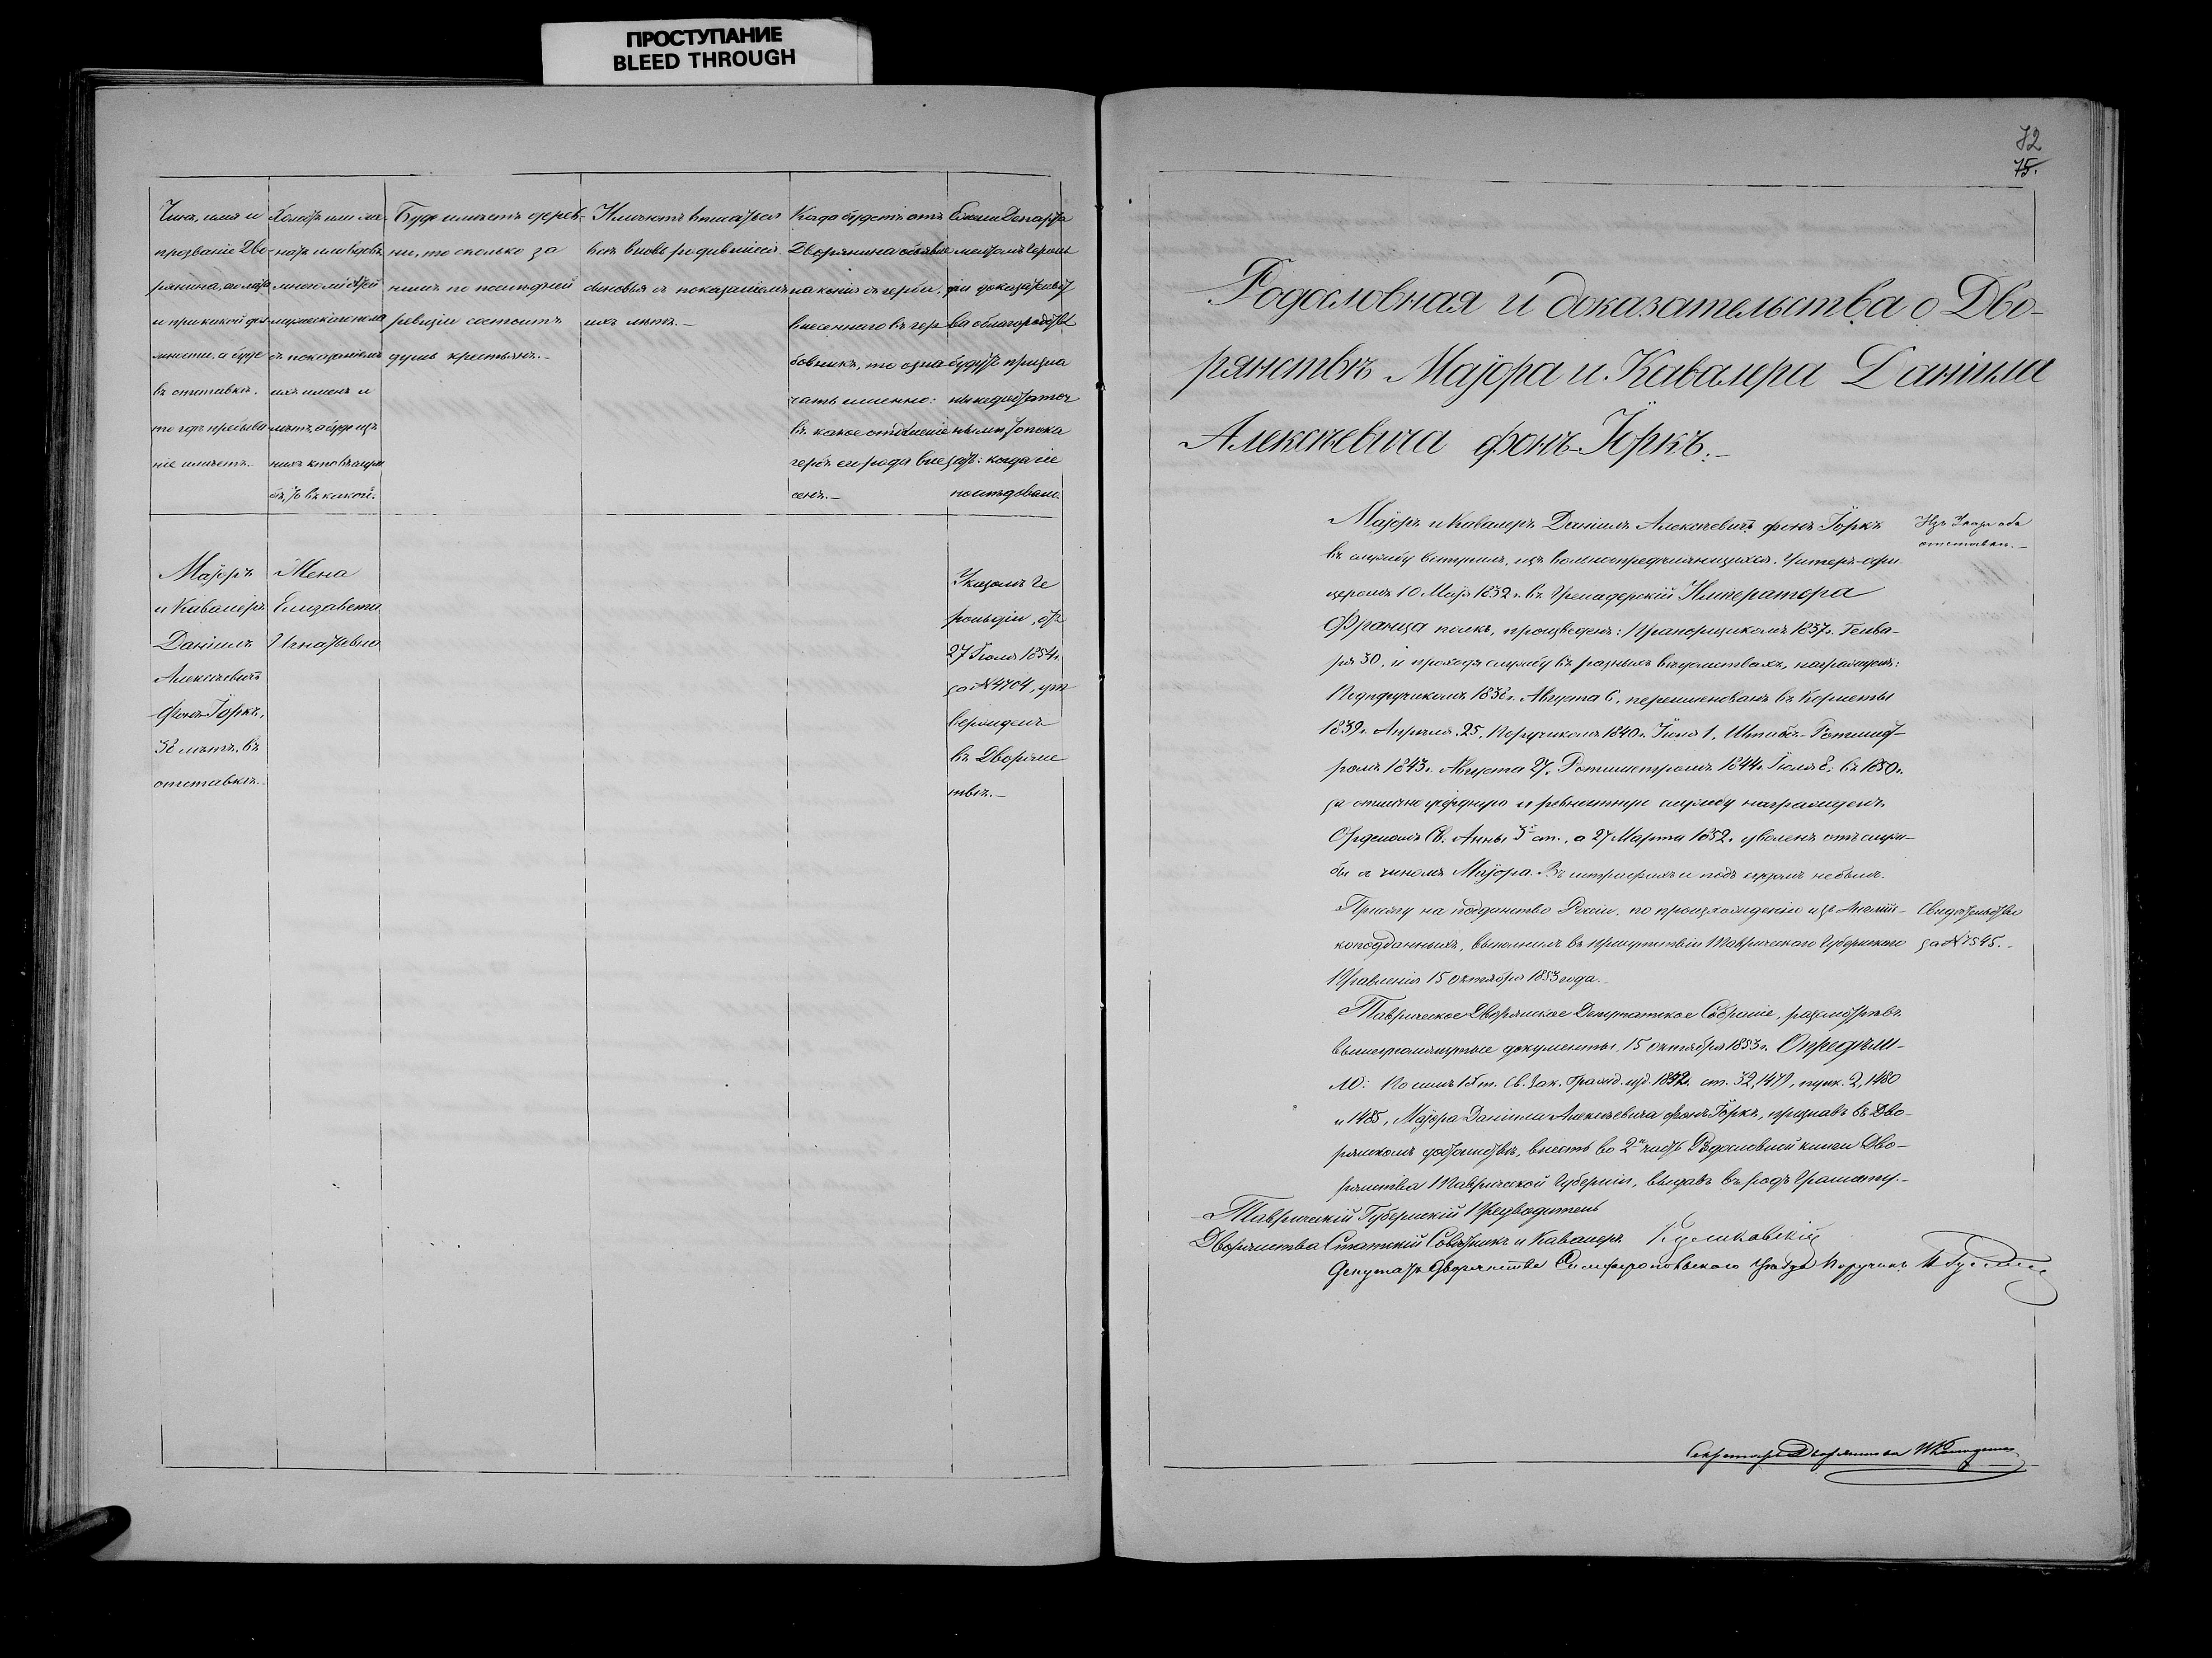 ПРОСТУПАНИЕ
BLEED THROUGH
Чинъ, имя и
прозваніе Дво-
рянина, его лѣта
и при какой дол-
жности, а буде
въ отставкѣ,
то гдѣ пребыва
ніе имѣетъ.
Холостъ или же-
натъ или вдовъ,
много ли дѣтей
мужескаго пола
съ показаніемъ
ихъ именъ и
лѣтъ, а буде изъ
нихъ кто въ служ
бѣ, то въ какой.
Буде имѣетъ дерев-
ни, то сколько за
нимъ по послѣдней
ревизіи состоитъ
душъ крестьянъ.-
Имѣютъ вписаться
всѣ вновь родившіеся
сыновья съ показаніемъ
ихъ лѣтъ.-
Когда будетъ отъ
Дворянина объявле
на копія съ герба,
внесеннаго въ гер
бовникъ, то озна
чать именно:
въ какое отдѣленіе
гербъ его рода вне
сенъ.-
Ежели Департа
ментомъ Героль
діи доказательст
ва о благородствѣ
будутъ призна
ны недостаточ
ными, то пока
зать: когда сіе
послѣдовало.
Маіоръ
и Кавалеръ
Даніилъ
Алексѣевичъ
фонъ Іоркъ,
38 лѣтъ, въ
отставкѣ.-
Жена
Елизавета
Игнатьевна
Указомъ Ге
рольдіи, отъ
27 Іюля 1854г.
за № 4704, ут
вержденъ
въ Дворянс
твѣ.-
72
75.
Родословная и доказательства о Дво-
рянствѣ Маіора и Кавалера Даніила
Алексѣевича фонъ-Іоркъ.-
Маіоръ и Кавалеръ Даніилъ Алексѣевичъ фонъ Іоркъ
въ службу вступилъ, изъ вольноопредѣляющихся. Унтеръ-офи
церомъ 10 Мая 1832 г. въ Гренадерскій Императора
Франца полкъ, произведенъ: Прапорщикомъ 1837г. Генва-
ря 30, и проходя службу въ разныхъ вѣдомствахъ, награжденъ:
Подпоручикомъ 1838г. Августа 6, переименованъ въ Корнеты
1839г. Апрѣля 25, Поручикомъ 1840г. Іюня 1, Штабсъ-Ротмист-
ромъ 1843г. Августа 27, Ротмистромъ 1844г. Іюля 8, въ 1850г.
за отлично усердную и ревностную службу награжденъ
Орденомъ Св. Анны 3й ст., а 27 Марта 1852г. уволенъ отъ служ-
бы съ чиномъ Маіора. Въ штрафахъ и подъ судомъ не былъ.
Изъ Указа объ
отставкѣ.-
Присягу на подданство Россіи, по происхожденію изъ Англійс-
коподданныхъ, выполнилъ въ присутствіи Таврическаго Губернскаго
Правленія 15 октября 1853 года.-
Свидѣтельство
за № 7545.-
Таврическое Дворянское Депутатское Собраніе, разсмотрѣвъ
вышеупомянутые документы, 15 октября 1853г. Опредѣли-
ло: По силѣ IX т. Св. Зак. Гражд. изд. 1842г. ст. 32, 1479, пунк. 2, 1480
и 1485, Маіора Даніила Алексѣевича фонъ Іоркъ, признавъ въ Дво-
рянскомъ достоинствѣ, внесть во 2ю часть Родословной книги Дво-
рянства Таврической Губерніи, выдавъ въ родъ Грамоту.-
Таврическій Губернскій Предводитель
Дворянства Статскій Совѣтникъ и Кавалеръ
Депутатъ Дворянства Симферопольскаго Уѣзда Поручикъ
Секретарь Дворянства